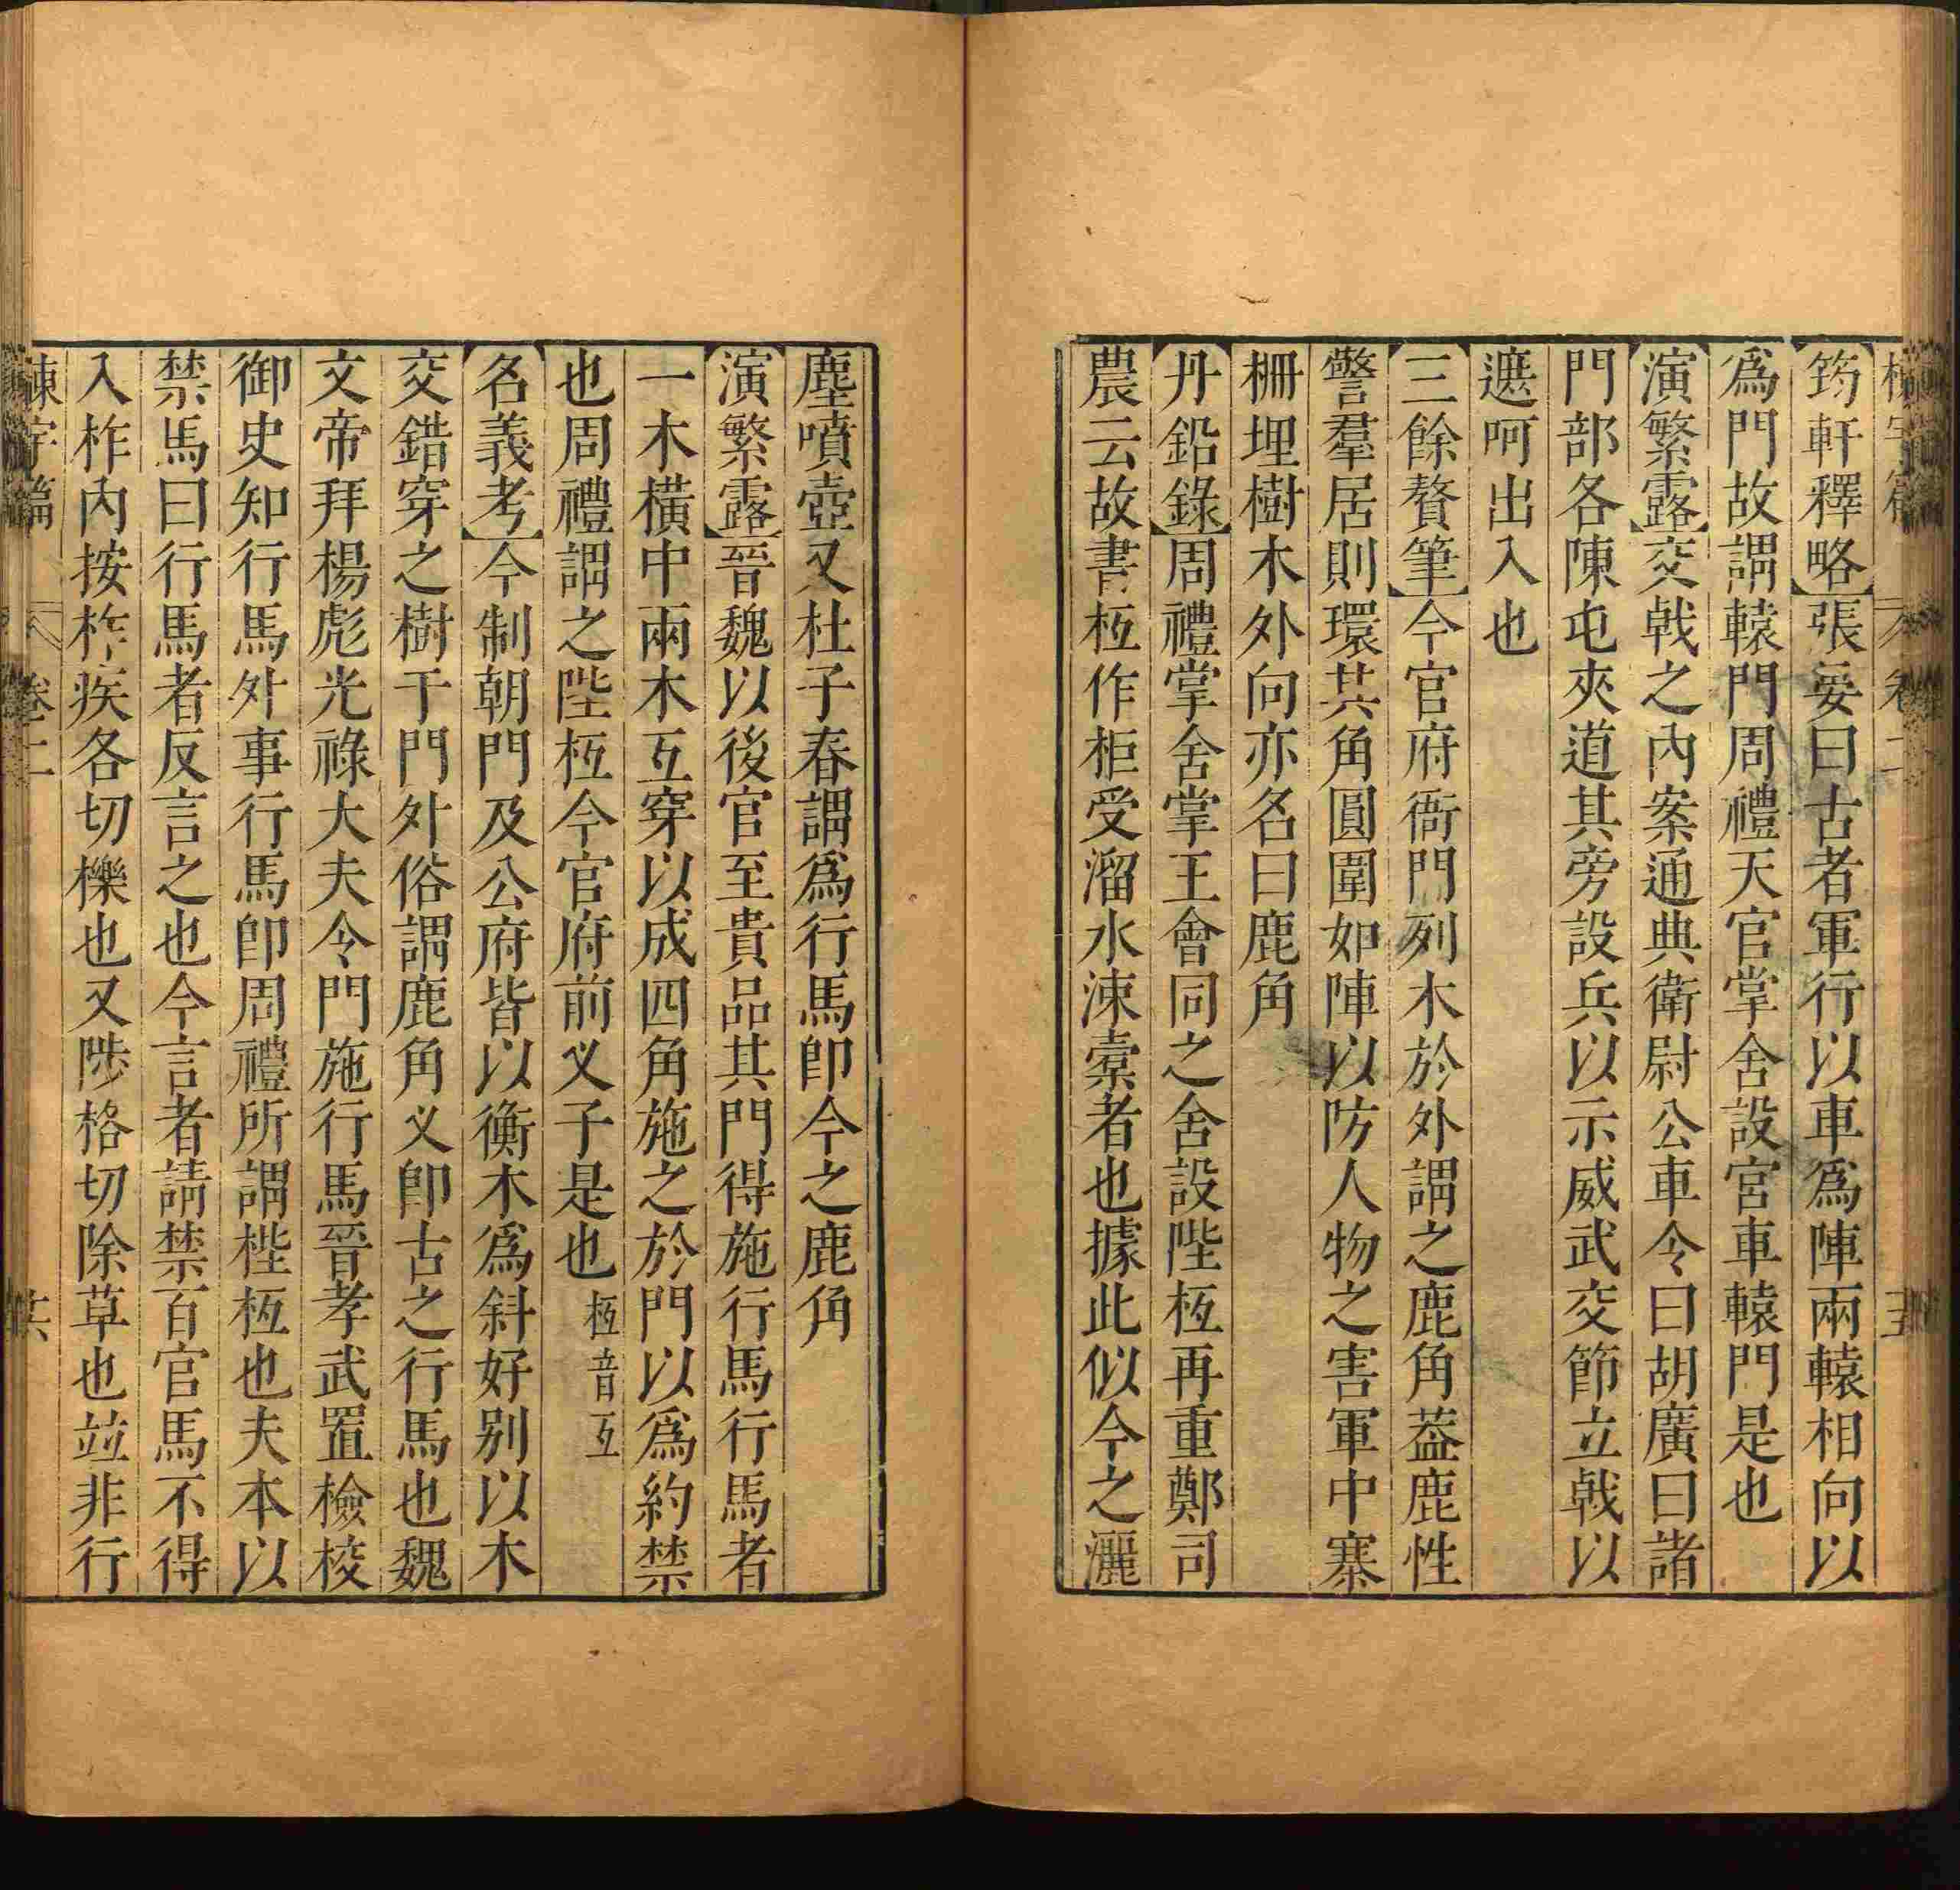 筠軒釋略張晏曰古者軍行以車爲陣兩轅相向以
爲門故謂轅門周禮天官掌舍設宮車轅門是也
演繁露交戟之內案通典衛尉公車令曰胡廣曰諸
門部各陳屯夾道其旁設兵以示威武交節立戟以
遮呵出入也
三餘贅筆今官府衙門列木於外謂之鹿角葢鹿性
警羣居則環其角圓圍如陣以防人物之害軍中寨
柵埋樹木外向亦名曰鹿角
丹鉛錄周禮掌舍掌王會同之舍設陛枑再重鄭司
農云故書枑作柜受溜水涑橐者也據此似今之灑
塵噴壺又杜子春謂爲行馬卽今之鹿角
演繁露晉魏以後官至貴品其門得施行馬行馬者
一木橫中兩木互穿以成四角施之於門以爲約禁
也周禮謂之陛枑今官府前义子是也枑音互
名義考今制朝門及公府皆以衡木爲斜好别以木
交錯穿之樹于門外俗謂鹿角义卽古之行馬也魏
文帝拜楊彪光祿大夫令門施行馬晉孝武置檢校
御史知行馬外事行馬卽周禮所謂梐枑也夫本以
禁馬曰行馬者反言之也今言者請禁百官馬不得
入柞內按柞疾各切櫟也又陟格切除草也竝非行
楝宇篇 卷二